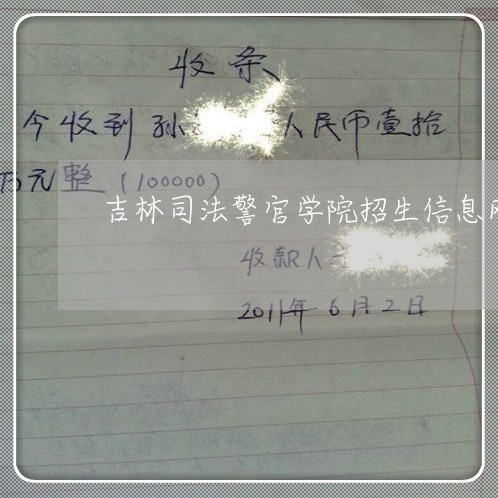 收条
今收到孙人民币壹拾
万元整(100000)
吉林司法警官学院招生信息
收款人
2011年6月2日